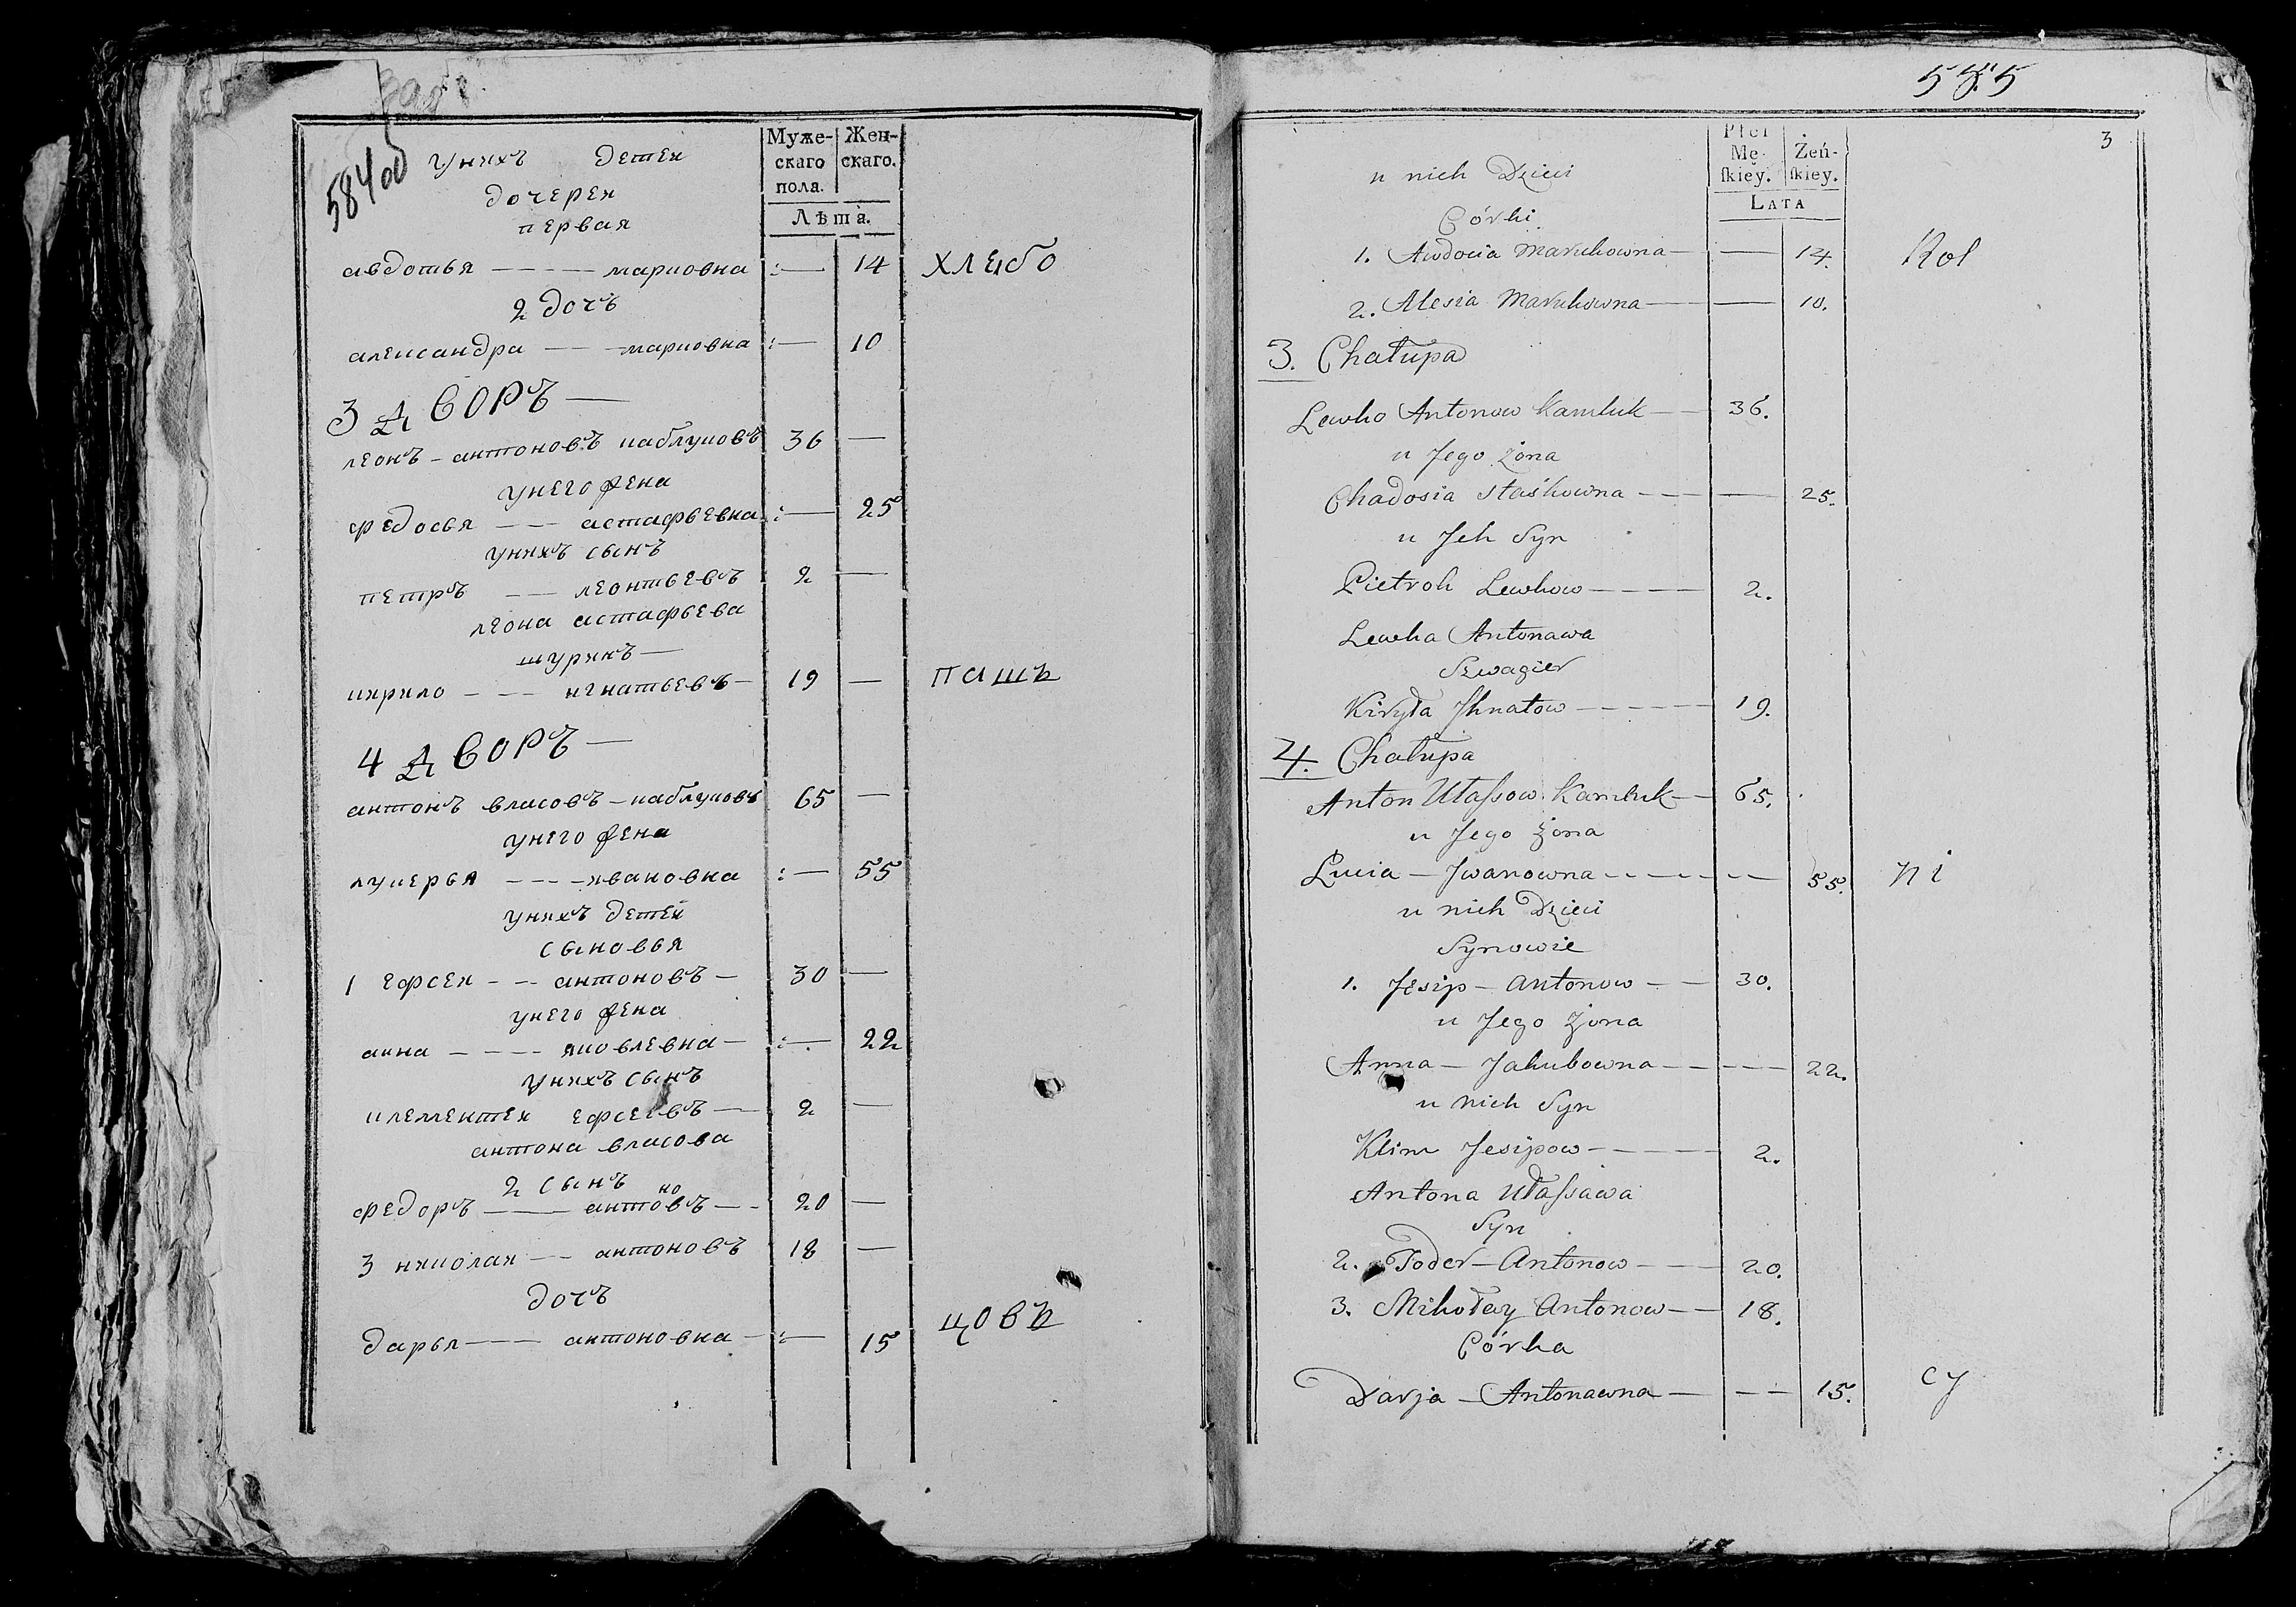 584об
Муже-
скаго
пола.
Жен-
скаго.
Лѣта.
унихъ детеи
дочереи
первая
авдотья — марковна :— 14 хлебо
2 дочъ
александра — марковна :— 10
3 дворъ —
леонъ - антоновъ каблуковъ 36 —
унего жена
федосья — астафьевна :— 25
унихъ сынъ
петръ — леонтьевъ 2 —
леона астафьева
шуринъ —
кирило — игнатьевъ — 19 — паше
4 дворъ —
антонъ власовъ — каблуковъ 65 —
унего жена
лукерья — ивановна :— 55
унихъ детеи
сыновья
1 ефсеи — антоновъ — 30 —
унего жена
анна — яковлевна — :— 22
унихъ сынъ
клементеи ефсеевъ — 2 —
антона власова
2 сынъ
федоръ — антоновъ — 20 —
3 николаи — антоновъ 18 —
дочъ
дарья — антоновна — :— 15 цовъ
585
3
Płci
Mę-
skiey.
Żeń-
skiey.
Lata
u nich Dzieci
Córki
1. Awdocia Markowna — — 14. Rol
2. Alesia Markowna — — 10.
3. Chałupa
Lewko Antonow Kamluk — 36.
u Jego żona
Chadosia Staśkowna — — 25.
u Jch Syn
Pietrok Lewkow — 2.
Lewka Antonawa
Szwagier
Kiryła Jhnatow — 19.
4. Chałupa
Anton Ułassow Kamluk — 65.
u Jego żona
Łucia — Jwanowna — — 55. ni
u nich Dzieci
Synowie
1. Jesip — Antonow — 30.
u Jego żona
Anna — Jakubowna — — 22.
u nich Syn
Klim Jesipow — 2.
Antona Ułassawa
Syn
2. Foder — Antonow — 20.
3. Mikołay Antonow — 18.
Córka
Darja — Antonawna — — 15. cy